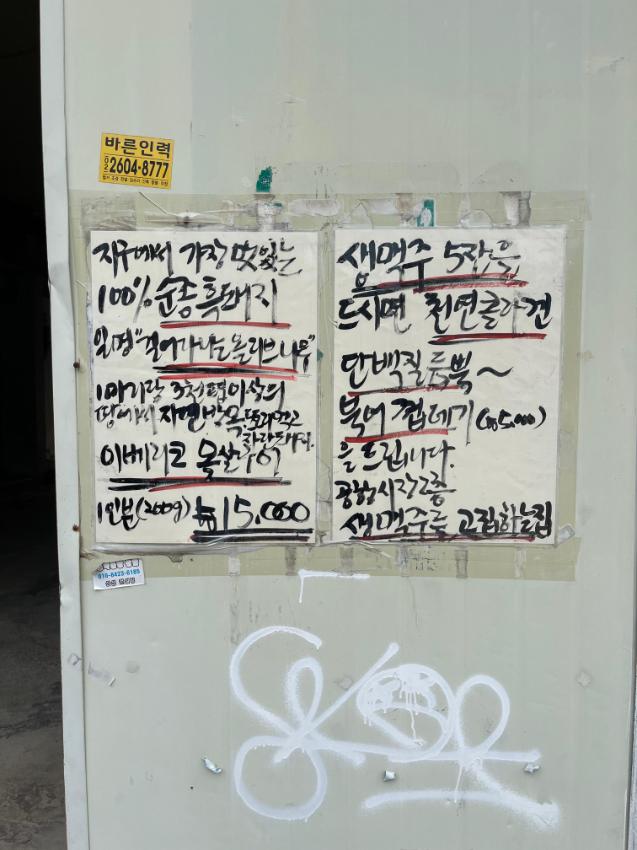 바른인력
02 2604-8777
지구에서 가장 맛있는
100% 순종흑돼지
일명 "걸어다니는 올리브나무"
1마리당 3천평이상의
땅에서 자연방목 도토리먹고
자란돼지.
이베리코 목살구이
1인분(200g) ₩15,000
생맥주 5잔을
드시면 천연콜라겐
단백질 듬뿍~
북어껍데기 (₩5,000)
을 드립니다.
광장시장2층
생맥주를 고집하는집
010-8423-6185